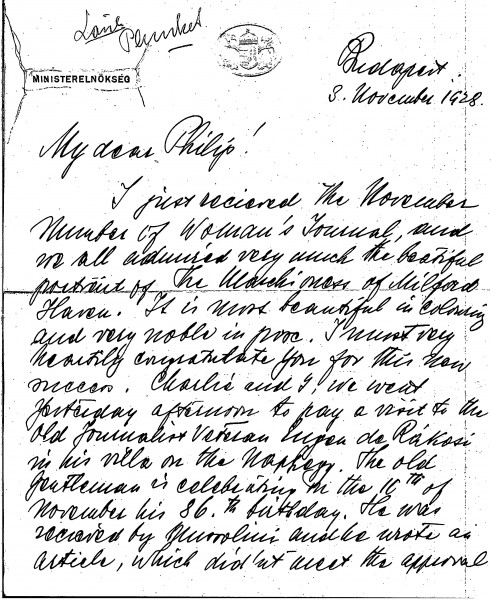 Plunket
MINISTERELNÖKSÉG
Budapest.
3. November 1928.
My dear Philip!
I just recieved the November
Number of Woman's Journal, and
we all admired very much the beatiful
portrait of the Marchioness of Milford
Haven. It is most beautiful in colouring
and very noble in pose. I must very
heartily congratulate you for this new
success. Charlie and I, we went
yesterday afternoon to pay a visit to the
Old Journalist Veteran Eugen de Rákosi
in his villa on the Naphegy. The old
gentleman is celebrating on the of
November his 86.th birthday. He was
recieved by Mussolini and he wrote an
article, which did'nt meet the approval